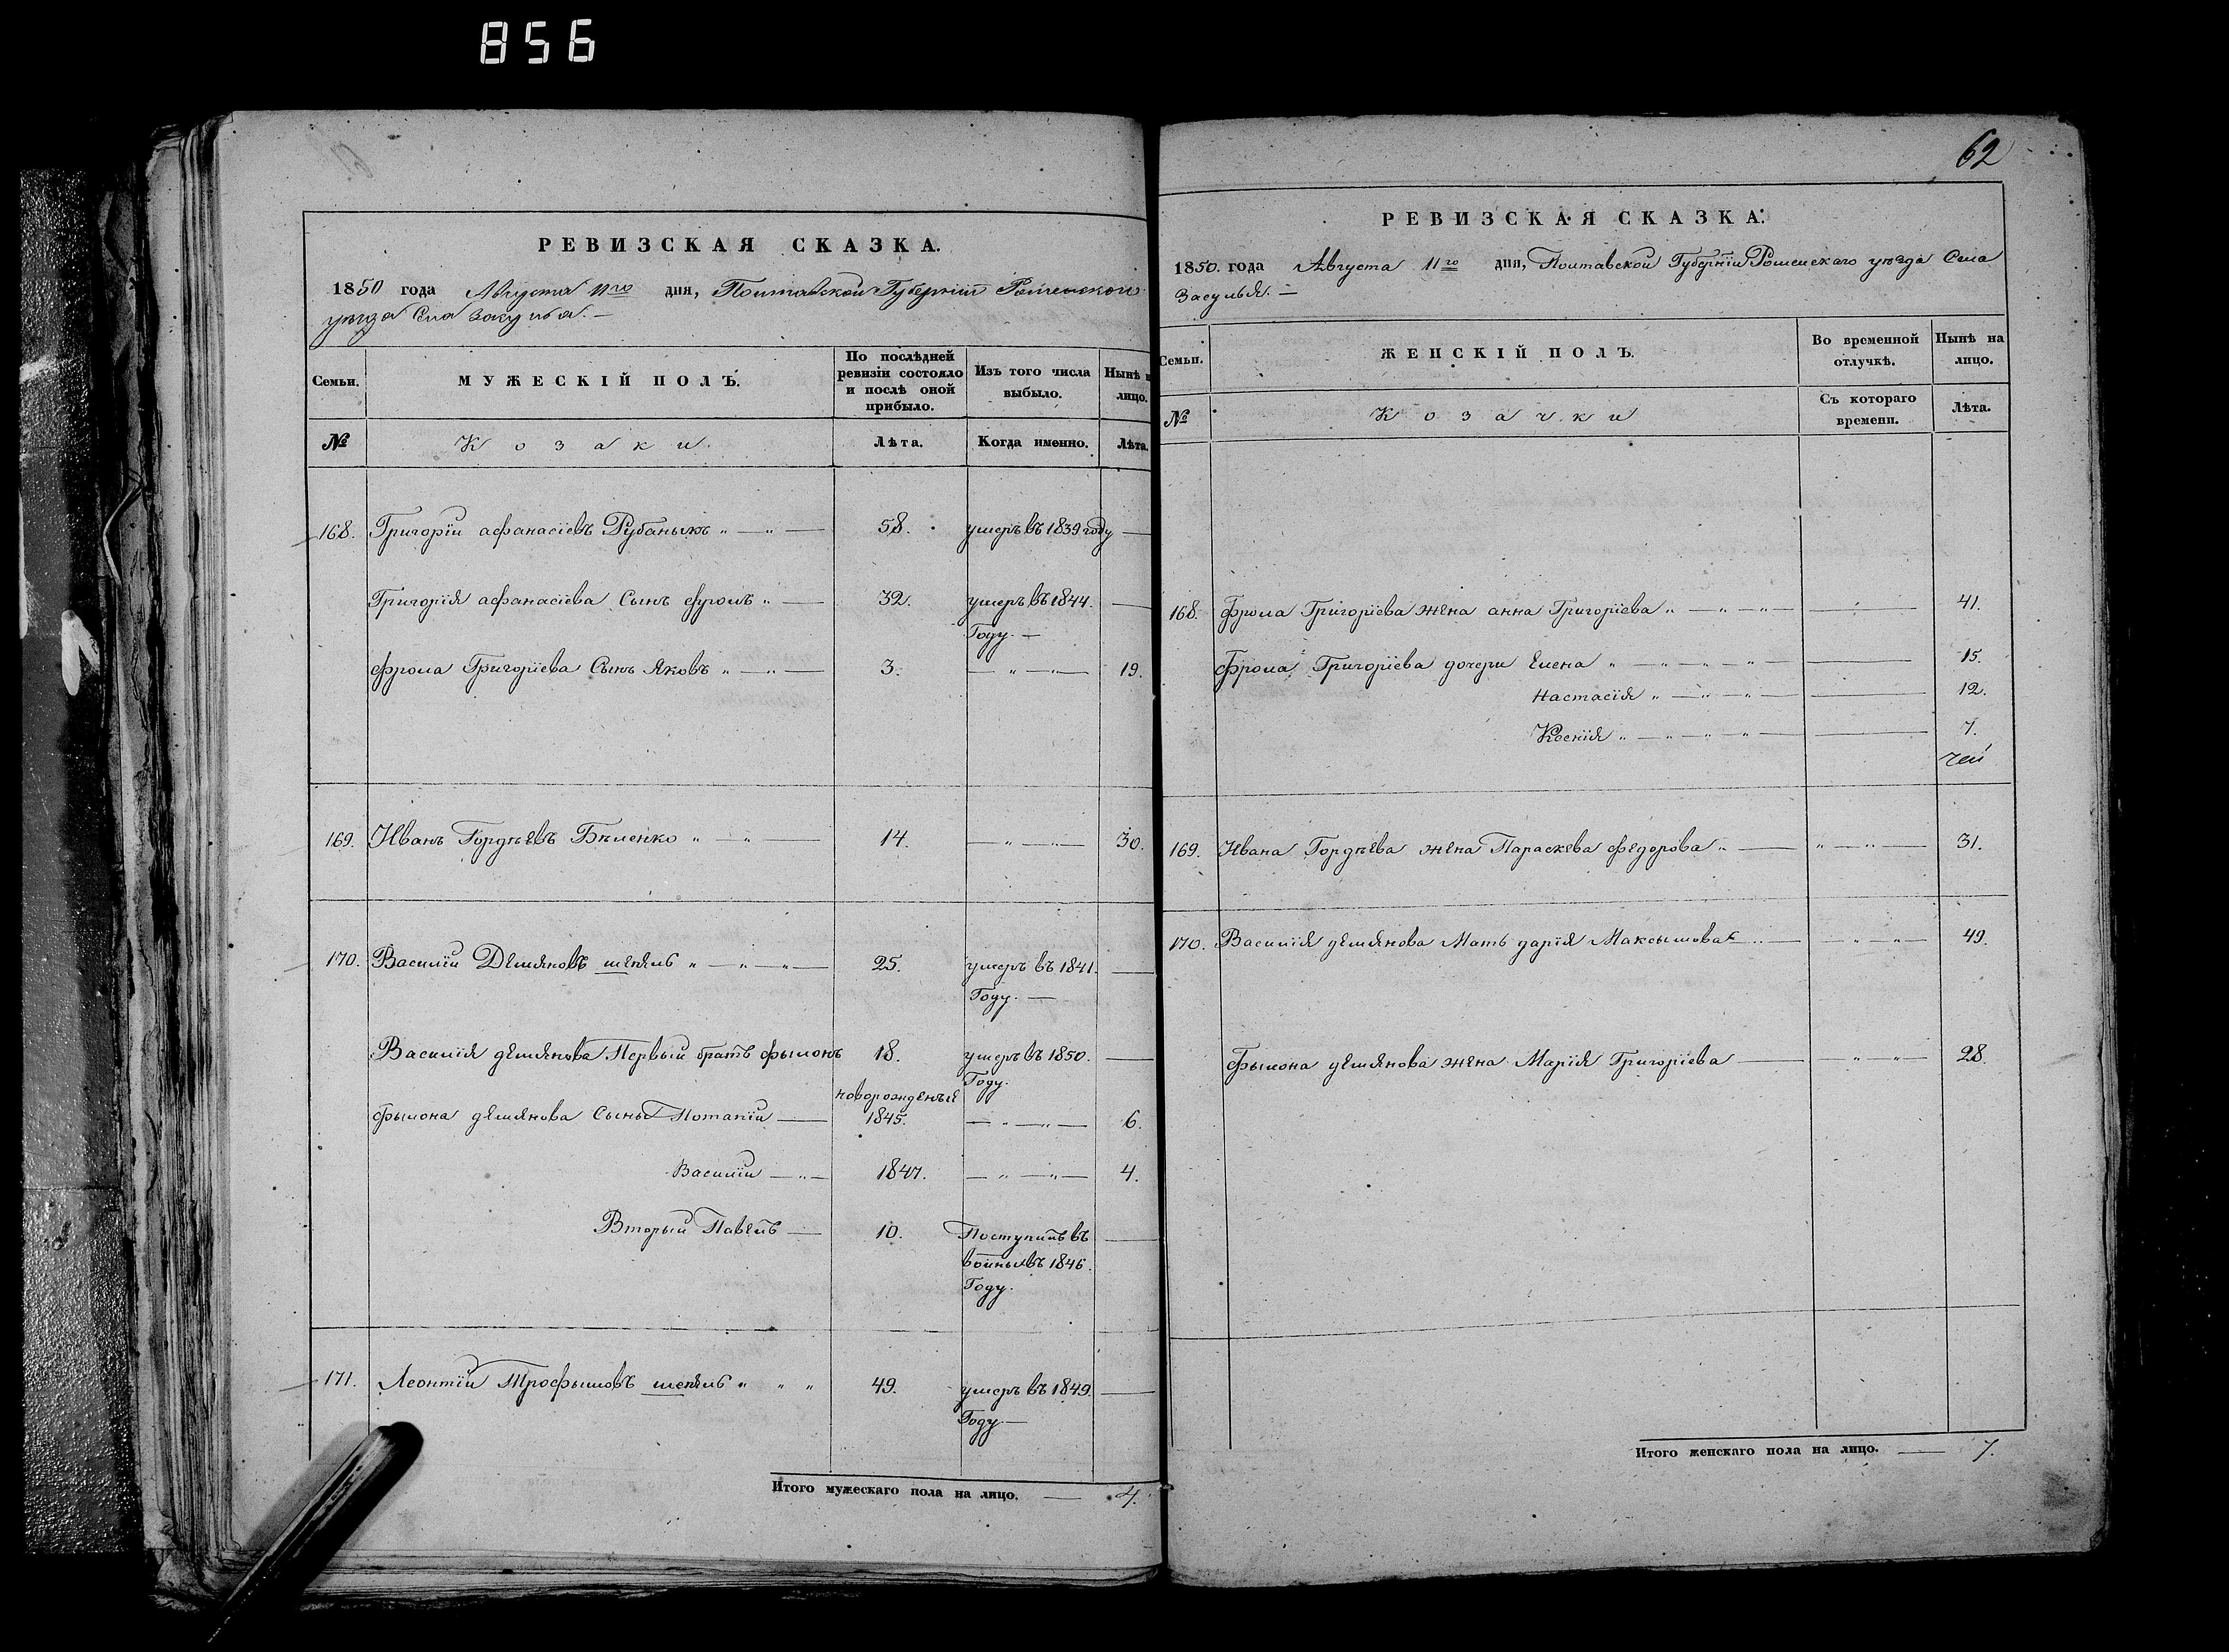 856
РЕВИЗСКАЯ СКАЗКА.
1850 года Августа 11го дня, Полтавской Губернiи Роменского
уѣзда Села Засулья. —
Семьи.
МУЖЕСКIЙ ПОЛЪ.
По послѣдней
ревизiи состояло
и послѣ оной
прибыло.
Изъ того числа
выбыло.
Нынѣ н
лицо.
№
Козаки.
Лѣта.
Когда именно.
Лѣта.
168. Григорiй афанасiевъ 58. умеръ въ 1839 году —
Григорiя афанасiева Сынъ фромъ „ — 32. умеръ въ 1844. —
Году. —
фрома Григорiева Сынъ Яковъ „ — „ — 3. — „ — „ — 19.
169. Иванъ Гордѣевъ Бѣленко „ — „ — 14. — „ — „ — 30.
170. Василiй Демяновъ шепель „ — „ — „ — 25. умеръ въ 1841. —
Году. —
Василiя демянова Первый братъ фылонъ 18. умеръ въ 1850. —
Году.
новорожденыя
фылона демянова Сыны Потапiй — 1845. — „ — „ — 6.
Василiй — „ — 1847. — „ — „ — 4.
Вторый Павелъ — 10. Поступилъ въ —
въ 1846.
Году.
171. Леонтiй Трофымовъ шепель „ „ „ 49. умеръ въ 1849. —
Году —
Итого мужескаго пола на лицо. — 4.
62
РЕВИЗСКАЯ СКАЗКА.
1850. года Августа 11го дня, Полтавской Губернiи Роменскаго уѣзда Села
Засулья. —
Семьи.
ЖЕНСКIЙ ПОЛЪ.
Во временной
отлучкѣ.
Нынѣ на
лицо.
№
Козачки
Съ котораго
времени.
Лѣта.
168. Фрома Григорiева жена анна Григорiева „ — „ — „ — 41.
Фрома Григорiева дочери Елена „ — „ — „ — „ — 15.
Настасiя „ — „ — „ — 12.
Ксенiя „ — „ — „ — „ — 7.
169. Ивана Гордѣева жена Параскева федорова „ — „ — „ — 31.
170. Василiя демянова Мать дарiя Максымова „ — — „ — „ — 49.
Фылона демянова жена Марiя Григорiева — — „ — „ — 28.
Итого женскаго пола на лицо. — 7.